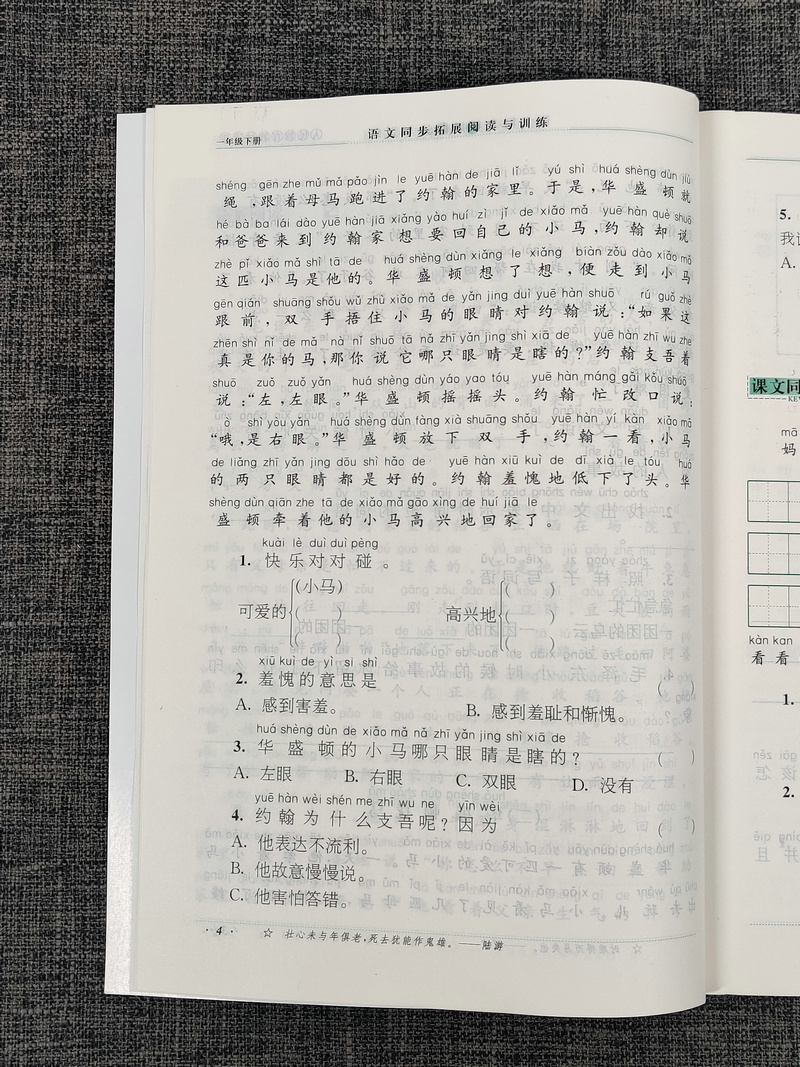 一年级下册
语文同步拓展阅读与训练
shéng gēn zhe mǔ mǎ pǎo jìn le yuē hàn de jiā lǐ yú shì huá shèng dùn jiù
绳,跟着母马跑进了约翰的家里。于是,华盛顿就
hé bà ba lái dào yuē hàn jiā xiǎng yào huí zì jǐ de xiǎo mǎ yuē hàn què shuō
和爸爸来到约翰家想要回自己的小马,约翰却说
zhè pǐ xiǎo mǎ shì tā de huá shèng dùn xiǎng le xiǎng biàn zǒu dào xiǎo mǎ
这匹小马是他的。华盛顿想了想,便走到小马
gēn qián shuāng shǒu wǔ zhù xiǎo mǎ de yǎn jing duì yuē hàn shuō rú guǒ zhè
跟前,双手捂住小马的眼睛对约翰说:“如果这
zhēn shì nǐ de mǎ nà nǐ shuō tā nǎ zhī yǎn jing shì xiā de yuē hàn zhī wu zhe
真是你的马,那你说它哪只眼睛是瞎的?”约翰支吾着
shuō zuǒ zuǒ yǎn huá shèng dùn yáo yao tóu yuē hàn máng gǎi kǒu shuō
说:“左,左眼。”华盛顿摇摇头。约翰忙改口说:
ò shì yòu yǎn huá shèng dùn fàng xià shuāng shǒu yuē hàn yí kàn xiǎo mǎ
“哦,是右眼。”华盛顿放下双手,约翰一看,小马
de liǎng zhī yǎn jing dōu shì hǎo de yuē hàn xiū kuì de dī xià le tóu huá
的两只眼睛都是好的。约翰羞愧地低下了头。华
shèng dùn qiān zhe tā de xiǎo mǎ gāo xìng de huí jiā le
盛顿牵着他的小马高兴地回家了。
kuài lè duì duì pèng
1. 快乐对对碰。
可爱的 (小马) ( ) ( ) 高兴地 ( ) ( ) ( )
xiū kuì de yì si shì
2. 羞愧的意思是 ( )
A. 感到害羞。 B. 感到羞耻和惭愧。
huá shèng dùn de xiǎo mǎ nǎ zhī yǎn jing shì xiā de
3. 华盛顿的小马哪只眼睛是瞎的? ( )
A. 左眼 B. 右眼 C. 双眼 D. 没有
yuē hàn wèi shén me zhī wu ne yīn wèi
4. 约翰为什么支吾呢?因为 ( )
A. 他表达不流利。
B. 他故意慢慢说。
C. 他害怕答错。
·4·
☆ 壮心未与年俱老,死去犹能作鬼雄。——陆游
5.
A.
课文同
mā
妈
kàn kan
看看
1.
gāi zěn
该怎
2.
qiě
且